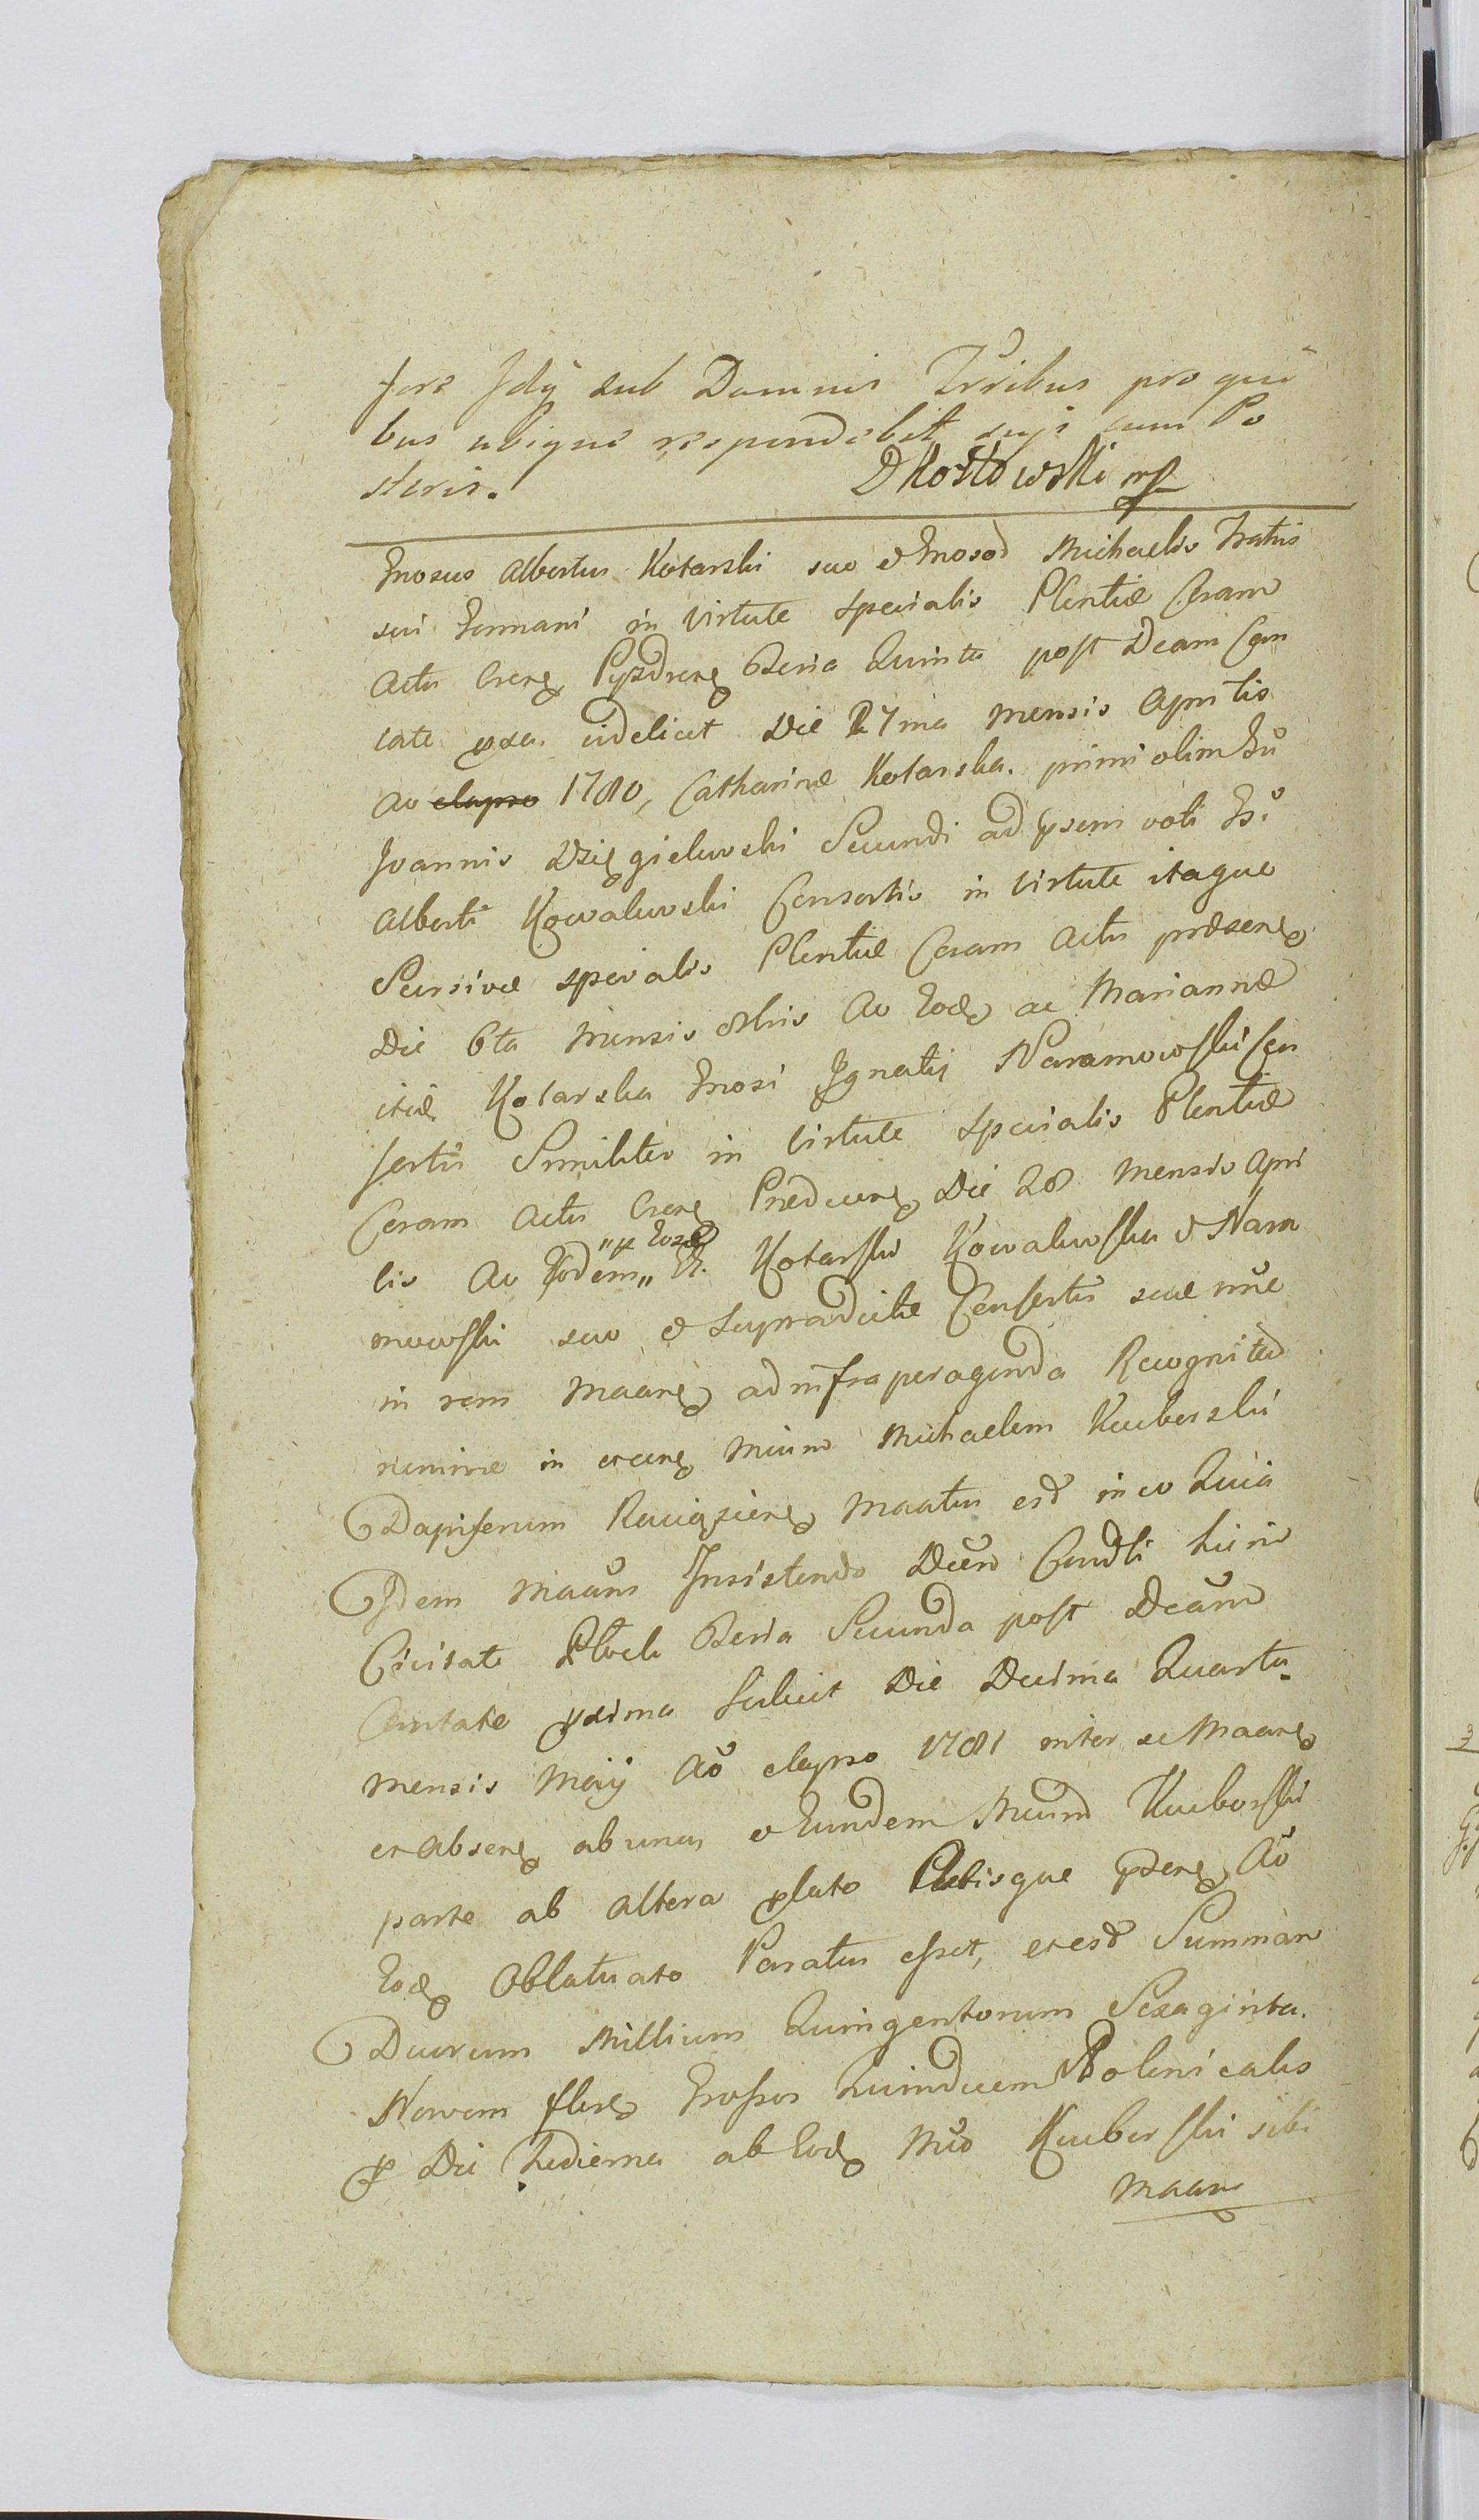 fore Jdq̃ sub Damnis Trribus pro qui
bus ubique respondebit suis cum Po
steris. DKosłowski mp
Gnosus Albertus Kotarski suo et Gnosod Michaelis Fratris
sui Germani in Virtute Specialis Plentiæ Coram
Actis Cren Pyzdren Feria Quinta post Dcam Can
tate pxa videlicet Die 27ma Mensis Aprilis
Ao elapso 1780, Catharinæ Kotarska primi olim Gũ
Joannis Dzięgielewski Secundi ad psens voti Gsi
Alberti Kowalewski Consortis in Virtute itaque
Scursivæ specialis Plentiæ Coram Actis præsen
Die 6ta Mensis Obris Ao Eod ac Mariannæ
itid Kotarska Gnosi Ignatij Naramowski Con
sortis Similiter in Virtute Specialis Plentiæ
Coram Actis Cren Prædecen Die 28 Mensis Apri
lis Ao Eodem „p Eosd„ G. Kotarski Kowalewska et Nara
mowski suo et supradictæ Consortis suæ nne
in rem Maane ad infra peragenda Recognita
nomine in erecne Mcum Michaelem Kuiborski
Dapiferum Raciązien Maatus est in eo Quia
Idem Maans Insistendo Dcen Condti hic in
Civitate Płock Feria Secunda post Dcam
Cantate pxima scilicet Die Decima Quarta
Mensis Maij Ao elapso 1781 inter se Maane
er absen ab una et Eundem Mcum Kuiborski
parte ab altera plato Actisque psen Ao
Eod Oblatuato Paratus esset, er est Summam
Duorum Millium Quingentorum Sexaginta
Novem flen Grossos Quindecem Polonicales
p Die Hodierna ab Eod Mco Kuiborski sibi
Maan